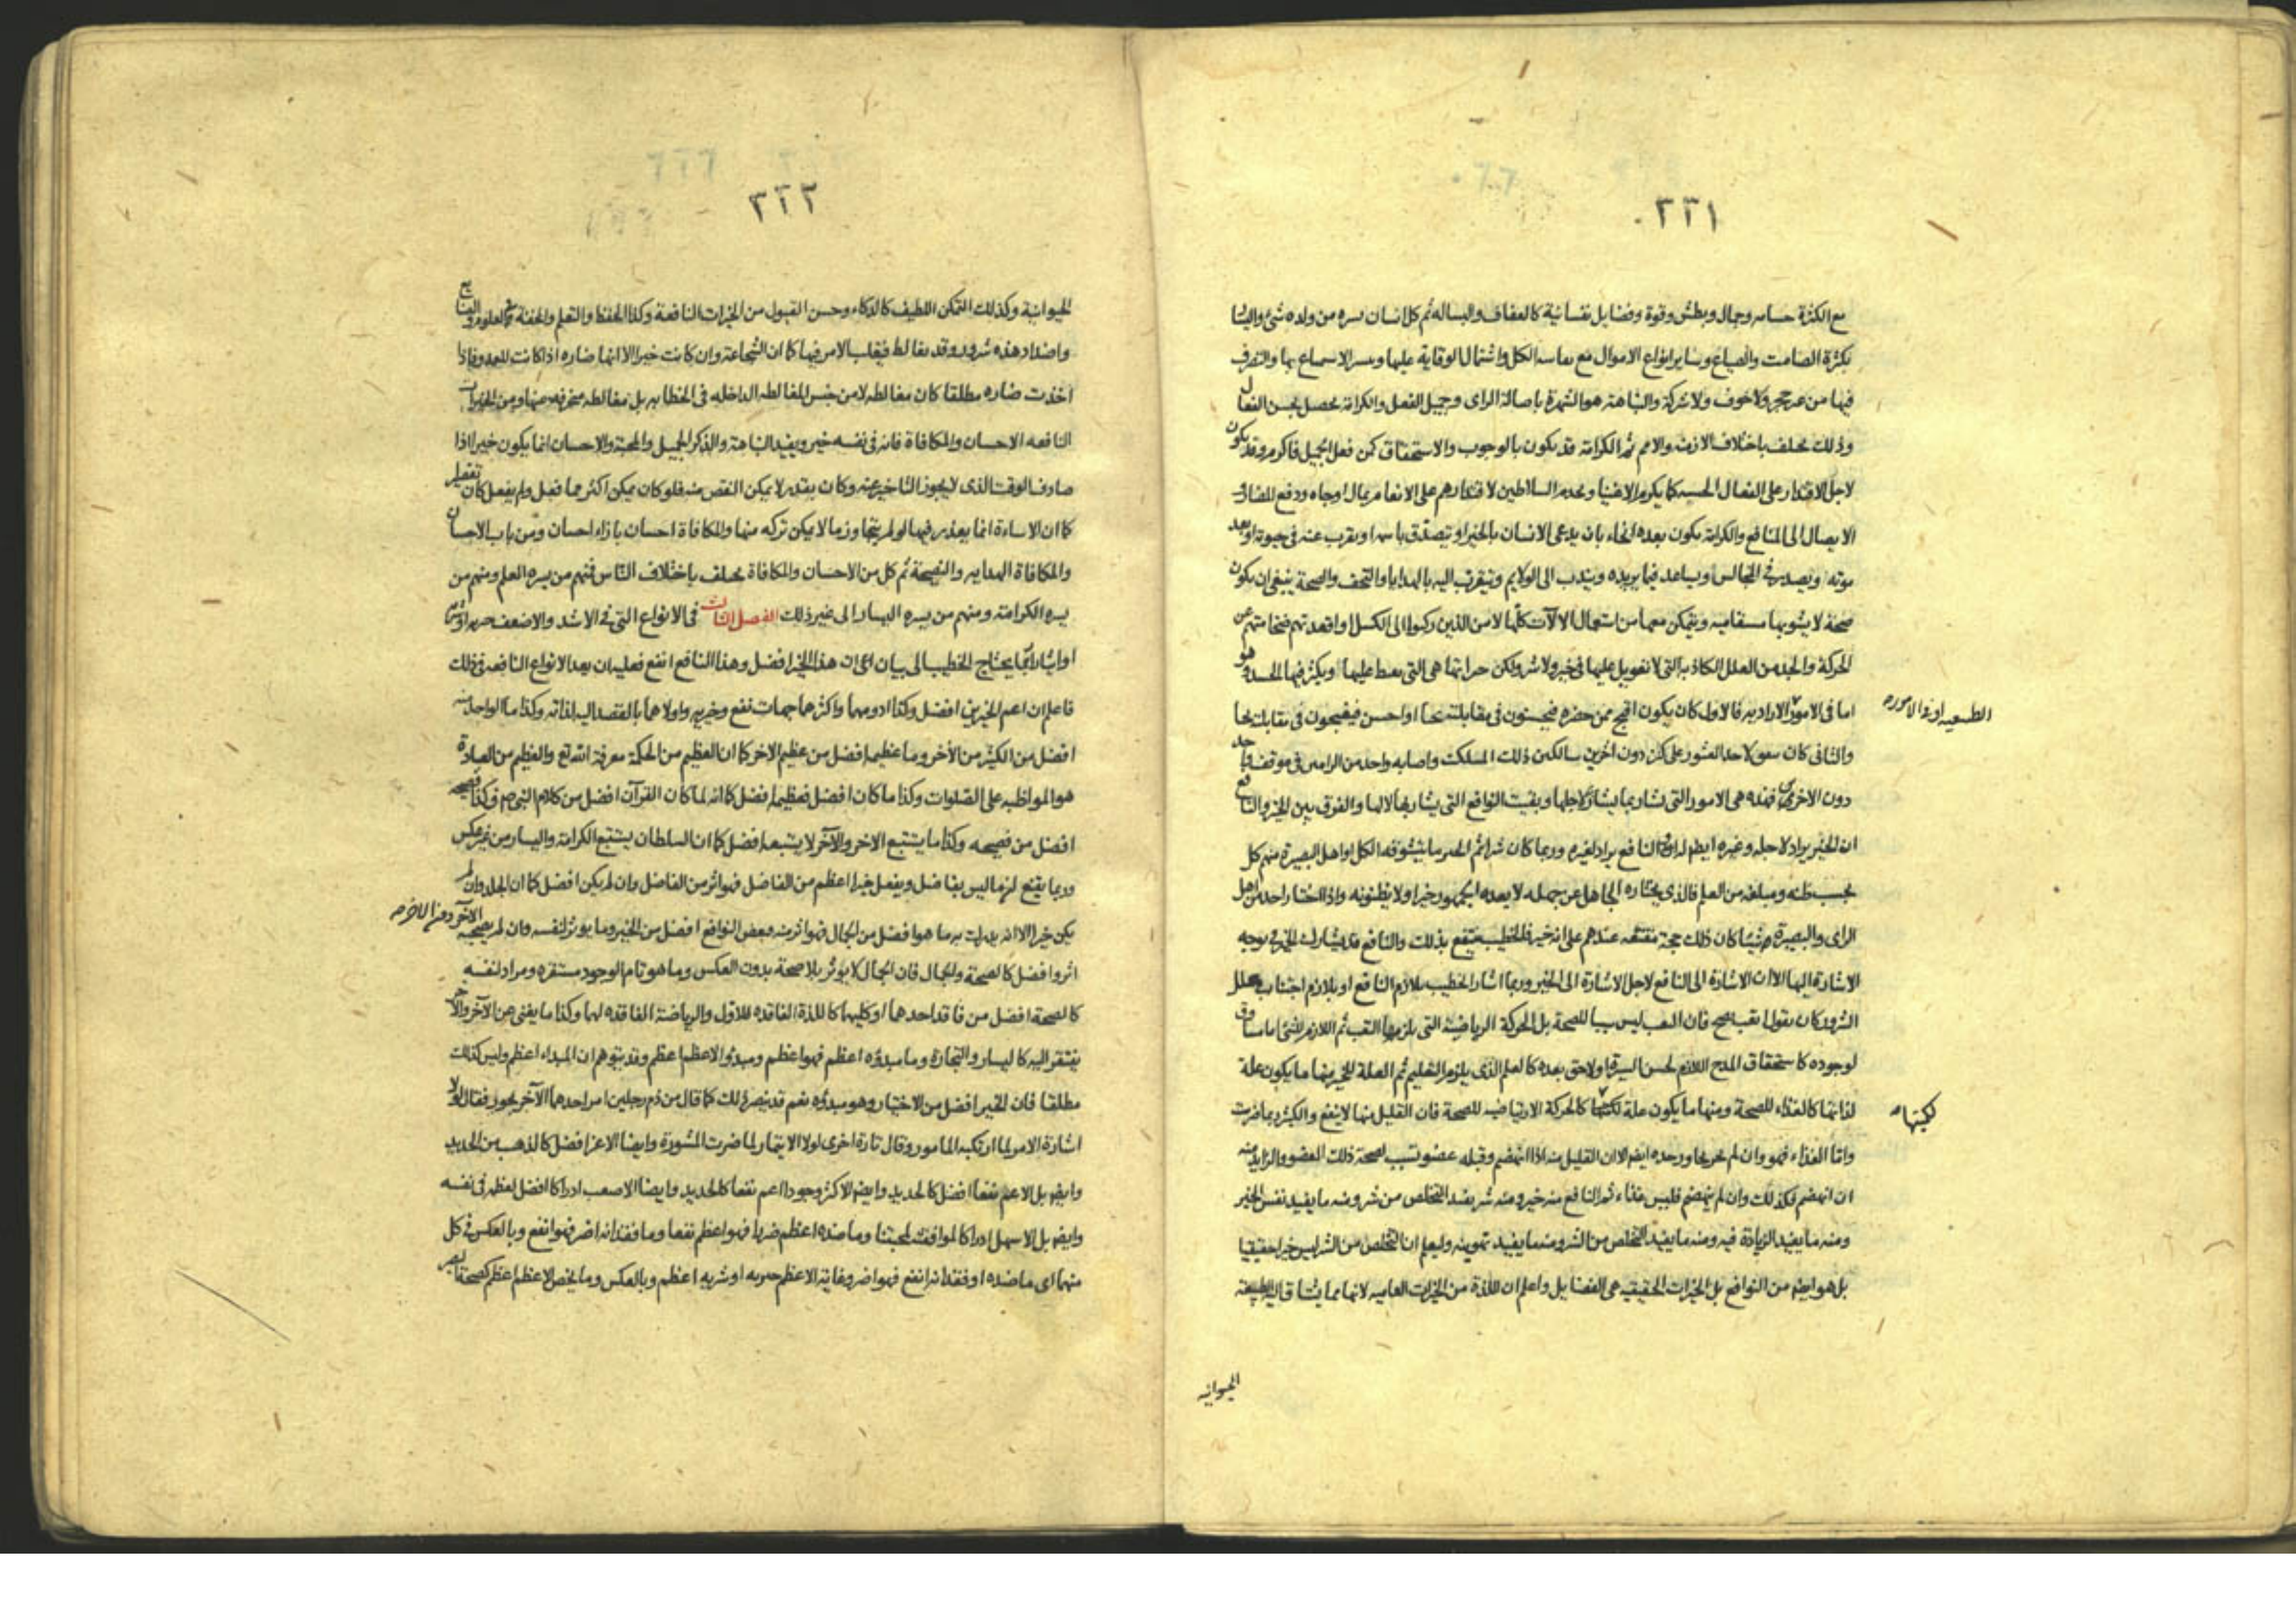 ٢٢١
مع الكثرة وجمال وبطش وقوة وفضايل نفسانية كالعفاف والبساله ثم كل انسان يسره من ولده شئ واليسار
بكثرة الصامت والضياع وساير انواع الاموال مع الكل واشتمال الوقاية عليها بها والتصرف
فيها من غير حجر ولا خوف ولا شركة والنباهة هو الشهرة باصالة الراى وجميل الفعل والكرامة تحصل بحسن الفعال
وذلك يختلف باختلاف الازمنة والامم ثم الكرامة قد يكون بالوجوب والاستحقاق كمن فعل الجميل فاكرم وقد يكون
لاجل الاقتدار على الفعال الحسنه كما يكرم الاغنيا ويخدم السلاطين لاقتدارهم على الانعام بمال او جاه ودفع المضار و
الايصال الى المنافع والكرامة يكون بعدة انحاء بان يدعى الانسان بالخير او يتصدق باسمه او يقرب عنه فى حيوته او بعد
موته او يصدر فى المجالس ويساعد فيما يريده ويندب الى الولايم ويتقرب اليه بالهدايا والتحف والصحة ينبغى ان يكون
صحة لا يشوبها مسقاميه ويتمكن معها من استعمال الالات كلها لا من الذين ركنوا الى الكسل واقعدتهم فخامتهم عن
الحركة والجد من العلل الكاذبه التى لا تعويل عليها فى خير ولا شر ولكن هى التى عليها ويكثر فيها الحسد وهو
اما فى الامور الاراديه فالاول كان يكون اقبح ممن حضره فيحسنون فى مقابلته او احسن فيقبحون فى مقابلته
الطبيعيه او فى الامور
والثانى كان لاحد العثور على كنز دون اخرين سالكين ذلك المسلك واصابه واحد من الرامين فى موقف واحد
دون الاخرين فهذه هى الامور التى يشار بما يشار لاجلها وبقيت النوافع التى يشار بها لا لها والفرق بين الخير والنافع
ان الخير يراد لاجله وغيره ايضا له والنافع يراد لغيره وربما كان شرا ثم الخير ما يتشوقه الكل او اهل البصيرة منهم كل
بحسب ظنه ومبلغه من العلم فالذى يختاره الجاهل عن جهله لا يعده الجمهور خيرا ولا يظنونه واذا اختار احد من اهل
الراى والبصيرة شيئا كان ذلك حجة مقنعه عندهم على انه خير فالخطيب ينتفع بذلك والنافع قد يشارك الخير فى توجه
الاشارة اليها الا ان الاشارة الى النافع لاجل الاشارة الى الخير وربما اشار الخطيب بلازم النافع او بلازم اجتناب علل
الشرور كان يقول اتعب تصح فان التعب ليس سببا للصحة بل الحركة الرياضية التى يلزمها التعب ثم اللازم للشئ اما مساوق
لوجوده كاستحقاق المدح اللازم لحسن السيرة او لاحق بعده كالعلم الذى يلزم التعليم ثم العلة للخير منها ما يكون علة
لذاتها كالغذاء للصحة ومنها ما يكون علة كالحركة الارتياضيه للصحة فان القليل منها لا ينفع والكثير ربما ضرت
لكميتها
واما الغذاء فهو وان لم ايضا الا ان القليل منه اذا انهضم وقبله عضو تسبب لصحة ذلك العضو والزايد منه
ان انهضم فكذلك وان لم ينهضم فليس غذاء ثم النافع منه خير ومنه شر يفيد التخلص من شر ومنه ما يفيد نفس الخير
ومنه ما يفيد الزيادة فيه ومنه ما يفيد التخلص من الشر ومنه ما يفيد تهوينه وليعلم ان التخلص من الشر ليس خيرا حقيقيا
بل هو ايضا من النوافع بل الخيرات الحقيقيه هى الفضايل واعلم ان اللذة من الخيرات العاميه لانها مما يشتاق اليه الطبيعة
الحيوانيه
٢٢٢
الحيوانية وكذلك التمكن اللطيف كالذكاء وحسن القبول من الخيرات النافعة وكذا الحفظ والتعلم والخفة فى العلوم والصنايع
واضداد هذه شرور وقد يغالط فيقلب الامر فيها كما ان الشجاعة وان كانت خيرا الا انها ضاره اذا كانت للعدو فاذا
اخذت ضاره مطلقا كان مغالطه لا من جنس المغالطه الداخله فى الخطابه بل مغالطه منحرفه عنها ومن الخيرات
النافعه الاحسان والمكافاة فانه فى نفسه خير ويفيد النباهة والذكر الجميل والمحبة والاحسان انما يكون خيرا اذا
صادف الوقت الذى لا يجوز التاخير عنه وكان بقدر لا يمكن النقص منه فلو كان يمكن اكثر مما فعل ولم يفعل كان تقصيرا
كما ان الاساءة انما يعذر فيها لو لم يتجاوز ما لا يمكن تركه منها والمكافاة احسان بازاء احسان ومن باب الاحسان
والمكافاة الهدايه والنصيحة ثم كل من الاحسان والمكافاة يختلف باختلاف الناس فمنهم من يسره العلم ومنهم من
يسره الكرامة ومنهم من يسره اليسار الى غير ذلك الفصل الثالث فى الانواع التى فى الاشد والاضعف
يحتاج الخطيب الى بيان ان هذا الخير افضل وهذا النافع انفع فعليه ان يعد الانواع النافعه فى ذلك
فاعلم ان اعم الخيرين افضل وكذا ادومهما واكثرهما جهات نفع وخيريه واولاهما بالقصد اليه لذاته وكذا ما الواحد منه
افضل من الكثير من الاخر وما عظيمه افضل من عظيم الاخر كما ان العظيم من الحكمة معرفة الله تع والعظيم من العبادة
هو المواظبه على الصلوات وكذا ما كان افضل فعظيمه افضل كما انه لما كان القرآن افضل من كلام النبى ص وكذا فصيحه
افضل من فصيحه وكذا ما يستتبع الاخر والآخر لا يستتبعه افضل كما ان السلطان يستتبع الكرامة واليسار من غير عكس
وربما يقنع لزما ليس بفاضل ويفعل خيرا اعظم من الفاضل فهو اثر من الفاضل وان لم يكن افضل كما ان الجلد وان لم
يكن خيرا الا انه يدرك به ما هو افضل من الجمال فهو اثر منه وبعض النوافع افضل من الخير وما يوثر لنفسه وان لم يصحبه الآخر
اثر وافضل كالصحة والجمال فان الجمال لا يوثر بلا صحة بدون العكس وما هو تام الوجود مستقره ومراد لنفسه
كالصحة افضل من فاقد احدهما او كليهما كاللذة الفاقده للاول والرياضة الفاقده لهما وكذا ما يغنى عن الآخر والآخر
يفتقر اليه كاليسار والتجارة وما مبدؤه اعظم فهو اعظم ومبدؤ الاعظم اعظم وقد يتوهم ان المبداء اعظم وليس كذلك
مطلقا فان الخير افضل من الاختيار وهو مبدؤه نعم قد ينصر ذلك كما قال من ذم رجلين امر احدهما الآخر بجور فقال لولا
اشارة الامر لما ارتكبه المامور وقال تارة اخرى لولا الايتمار لما ضرت المشورة وايضا الاعز افضل كالذهب من الحديد
وايضا بل الاعم نفعا افضل كالحديد وايضا الاكثر وجودا اعم نفعا كالحديد وايضا الاصعب ادراكا افضل لعظمه فى نفسه
وايضا بل الاسهل ادراكا لموافقته لمحبتنا وما ضده اعظم ضررا فهو اعظم نفعا وما فقدانه اضر فهو انفع وبالعكس فى كل
منهما اى ما ضده او فقدانه انفع فهو اضر وغاية الاعظم خيريه او شريه اعظم وبالعكس وما يخص الاعظم اعظم كصحة البصر